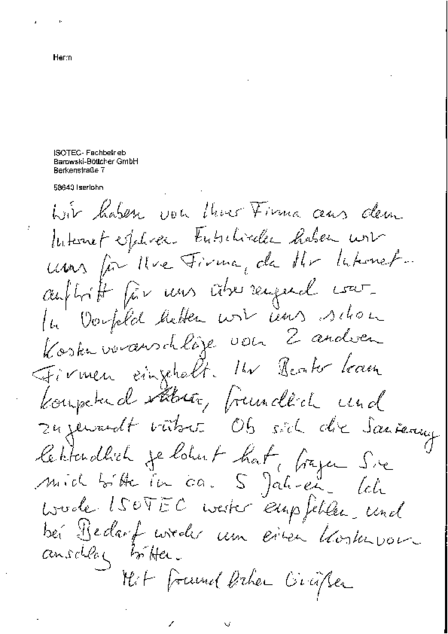 Herrn
ISOTEC- Fachbetrieb
Barowski-Böttcher GmbH
Berkenstraße 7
58640 Iserlohn
Wir haben von Ihrer Firma aus dem
Internet erfahren. Entschieden haben wir
uns für Ihre Firma, da Ihr Internet-
auftritt für uns überzeugend war.
Im Vorfeld hatten wir uns schon
Kostenvoranschläge von 2 anderen
Firmen eingeholt. Ihr Berater kam
kompetend rüber, freundlich und
zugewandt rüber. Ob sich die Sanierung
letztendlich gelohnt hat, fragen Sie
mich bitte in ca. 5 Jahren. Ich
würde ISOTEC weiter empfehlen und
bei Bedarf wieder um einen Kostenvor-
anschlag bitten.
Mit freundlichen Grüßen